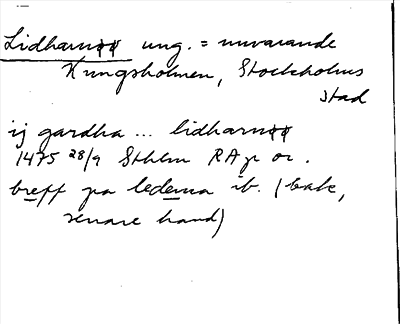 Lidharnøø ung. = nuvarande
Kungsholmen, Stockholms
stad
ij gardha ... lidharnøø
1475 28/9 Sthlm RAp or.
breff pa lederna ib. (bak,
senare hand)